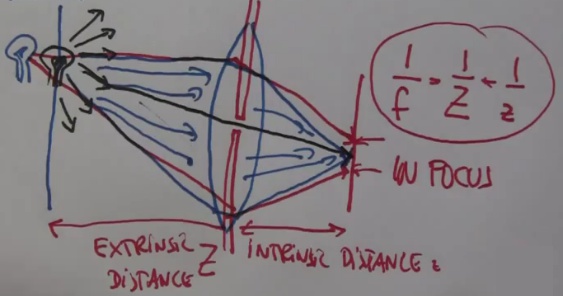 1/f = 1/Z + 1/z
IN FOCUS
EXTRINSIC
DISTANCE Z
INTRINSIC DISTANCE z